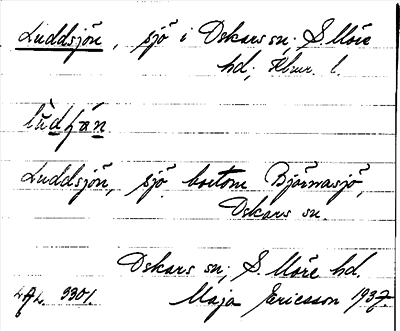 Luddsjön, sjö i Oskars sn; S. Möre
hd; Klmr. l.
Luddsjön, sjö bortom Björnasjö,
Oskars sn.
Oskars sn; S. Möre hd.
Maja Ericsson 1937.